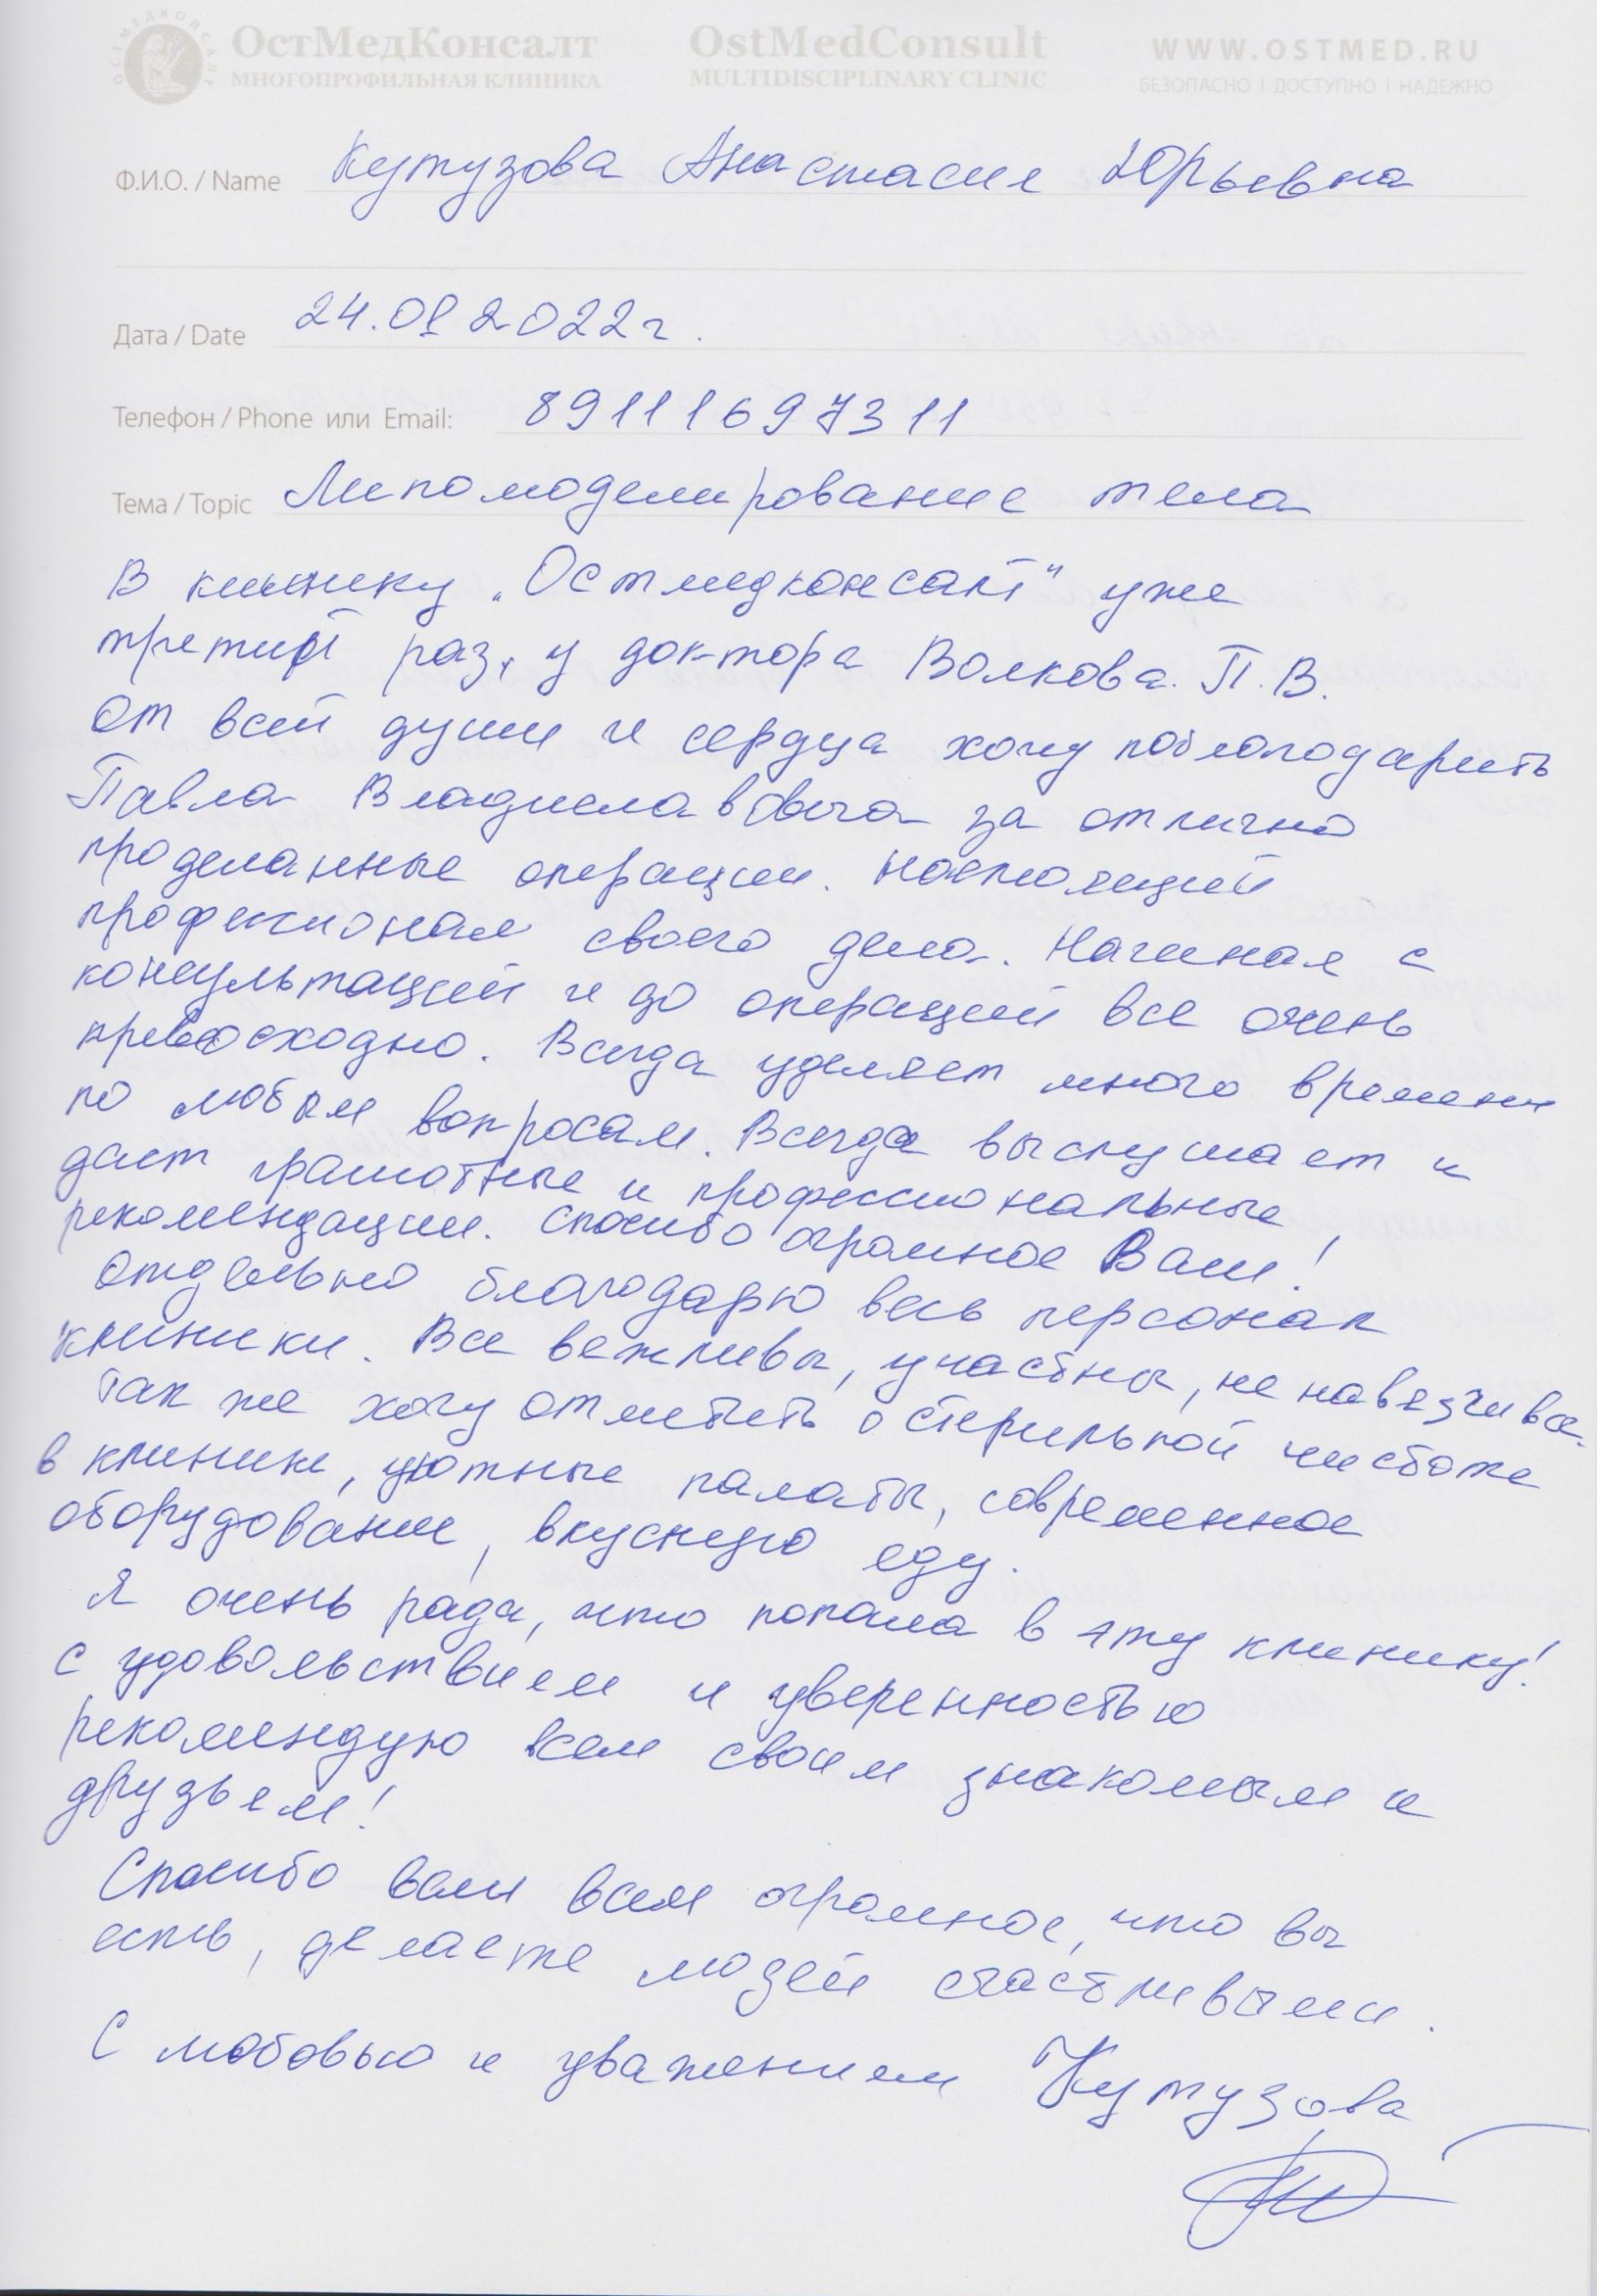 ОСТМЕДКОНСАЛТ
ОстМедКонсалт
МНОГОПРОФИЛЬНАЯ КЛИНИКА
OstMedConsult
MULTIDISCIPLINARY CLINIC
WWW.OSTMED.RU
БЕЗОПАСНО | ДОСТУПНО | НАДЕЖНО
Ф.И.О. / Name Кутузова Анастасия Юрьевна
Дата / Date 24.01 2022г.
Телефон / Phone или Email: 89111697311
Тема / Topic Липомоделирование тела
В клинику „Остмедконсалт" уже
третий раз, у доктора Волкова. П.В.
От всей души и сердца хочу поблагодарить
Павла Владиславовича за отлично
проделанные операции. Настоящий
профессионал своего дела. Начиная с
консультаций и до операций все очень
превосходно. Всегда уделяет много времени
по любым вопросам. Всегда выслушает и
дает грамотные и профессиональные
рекомендации. Спасибо огромное Вам!
Отдельно благодарю весь персонал
клиники. Все вежливы, участны, не навязчивы.
Так же хочу отметить о стерильной чистоте
в клинике, уютные палаты, современное
оборудование, вкусную еду.
Я очень рада, что попала в эту клинику!
С удовольствием и уверенностью
рекомендую всем своим знакомым и
друзьям!
Спасибо вам всем огромное, что вы
есть, делаете людей счастливыми.
С любовью и уважением Кутузова